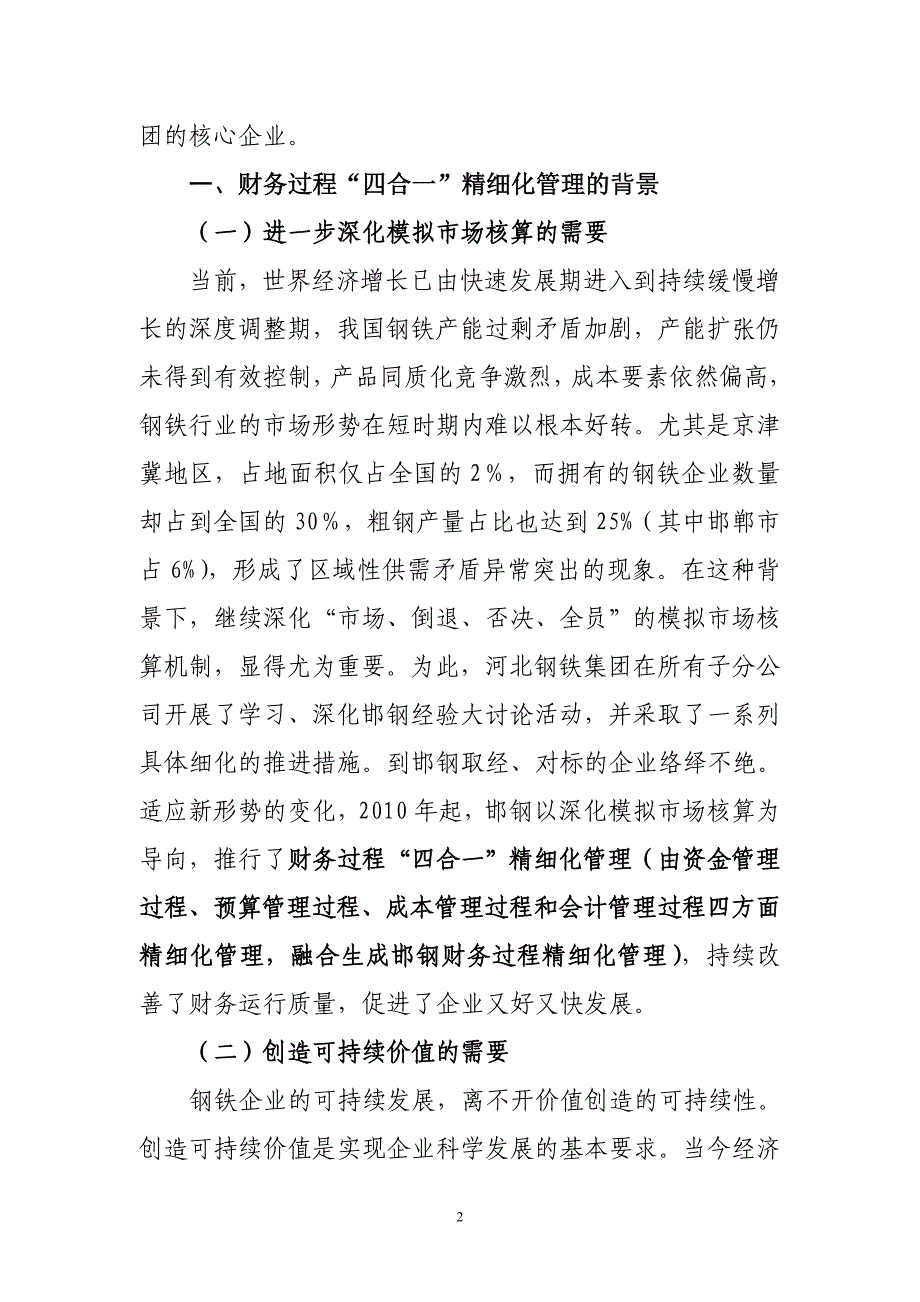 团的核心企业。
一、财务过程“四合一”精细化管理的背景
（一）进一步深化模拟市场核算的需要
当前，世界经济增长已由快速发展期进入到持续缓慢增
长的深度调整期，我国钢铁产能过剩矛盾加剧，产能扩张仍
未得到有效控制，产品同质化竞争激烈，成本要素依然偏高，
钢铁行业的市场形势在短时期内难以根本好转。尤其是京津
冀地区，占地面积仅占全国的 2%，而拥有的钢铁企业数量
却占到全国的 30%，粗钢产量占比也达到 25%（其中邯郸市
占 6%），形成了区域性供需矛盾异常突出的现象。在这种背
景下，继续深化“市场、倒退、否决、全员”的模拟市场核
算机制，显得尤为重要。为此，河北钢铁集团在所有子分公
司开展了学习、深化邯钢经验大讨论活动，并采取了一系列
具体细化的推进措施。到邯钢取经、对标的企业络绎不绝。
适应新形势的变化，2010 年起，邯钢以深化模拟市场核算为
导向，推行了财务过程“四合一”精细化管理（由资金管理
过程、预算管理过程、成本管理过程和会计管理过程四方面
精细化管理，融合生成邯钢财务过程精细化管理），持续改
善了财务运行质量，促进了企业又好又快发展。
（二）创造可持续价值的需要
钢铁企业的可持续发展，离不开价值创造的可持续性。
创造可持续价值是实现企业科学发展的基本要求。当今经济
2